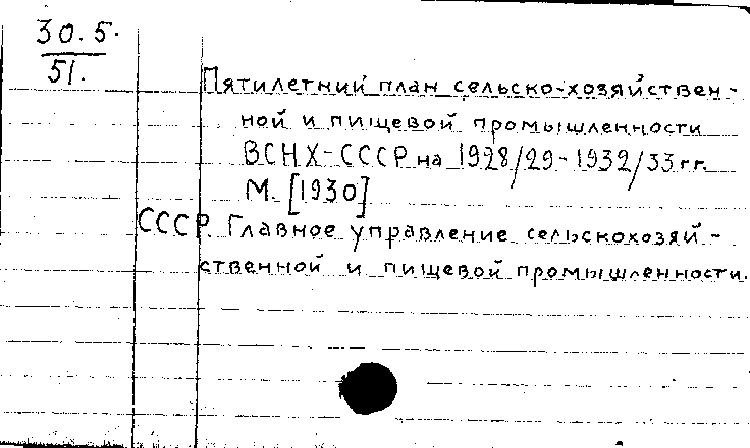 30.5.
51.
Пятилетний план сельско-хозяйствен-
ной и пищевой промышленности
ВСНХ-СССР на 1928/29-1932/33 гг.
М. [1930]
СССР. Главное управление сельскохозяй-
ственной и пищевой промышленности.